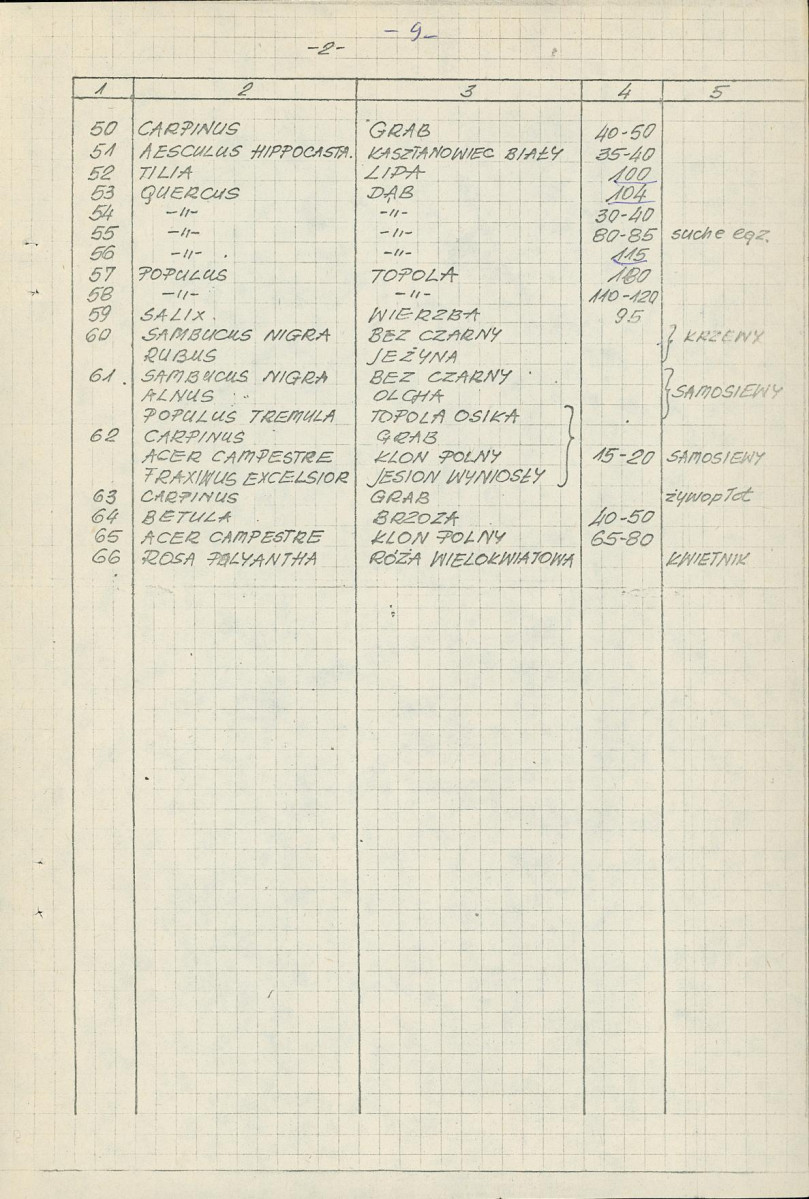 - 9 -
-2-
1 2 3 4 5
50 CARPINUS GRAB 40-50
51 AESCULUS HIPPOCASTA. KASZTANOWIEC BIAŁY 35-40
52 TILIA LIPA 100
53 QUERCUS DĄB 104
54 -"- -"- 30-40
55 -"- -"- 80-85 suche egz.
56 -"- -"- 115
57 POPULUS TOPOLA 180
58 -"- -"- 110-120
59 SALIX WIERZBA 95
60 SAMBUCUS NIGRA BEZ CZARNY } KRZEWY
RUBUS JEŻYNA
61 SAMBUCUS NIGRA BEZ CZARNY
ALNUS OLCHA } SAMOSIEWY
POPULUS TREMULA TOPOLA OSIKA
62 CARPINUS GRAB
ACER CAMPESTRE KLON POLNY } 15-20 SAMOSIEWY
FRAXINUS EXCELSIOR JESION WYNIOSŁY
63 CARPINUS GRAB żywopłot
64 BETULA BRZOZA 40-50
65 ACER CAMPESTRE KLON POLNY 65-80
66 ROSA POLYANTHA RÓŻA WIELOKWIATOWA KWIETNIK